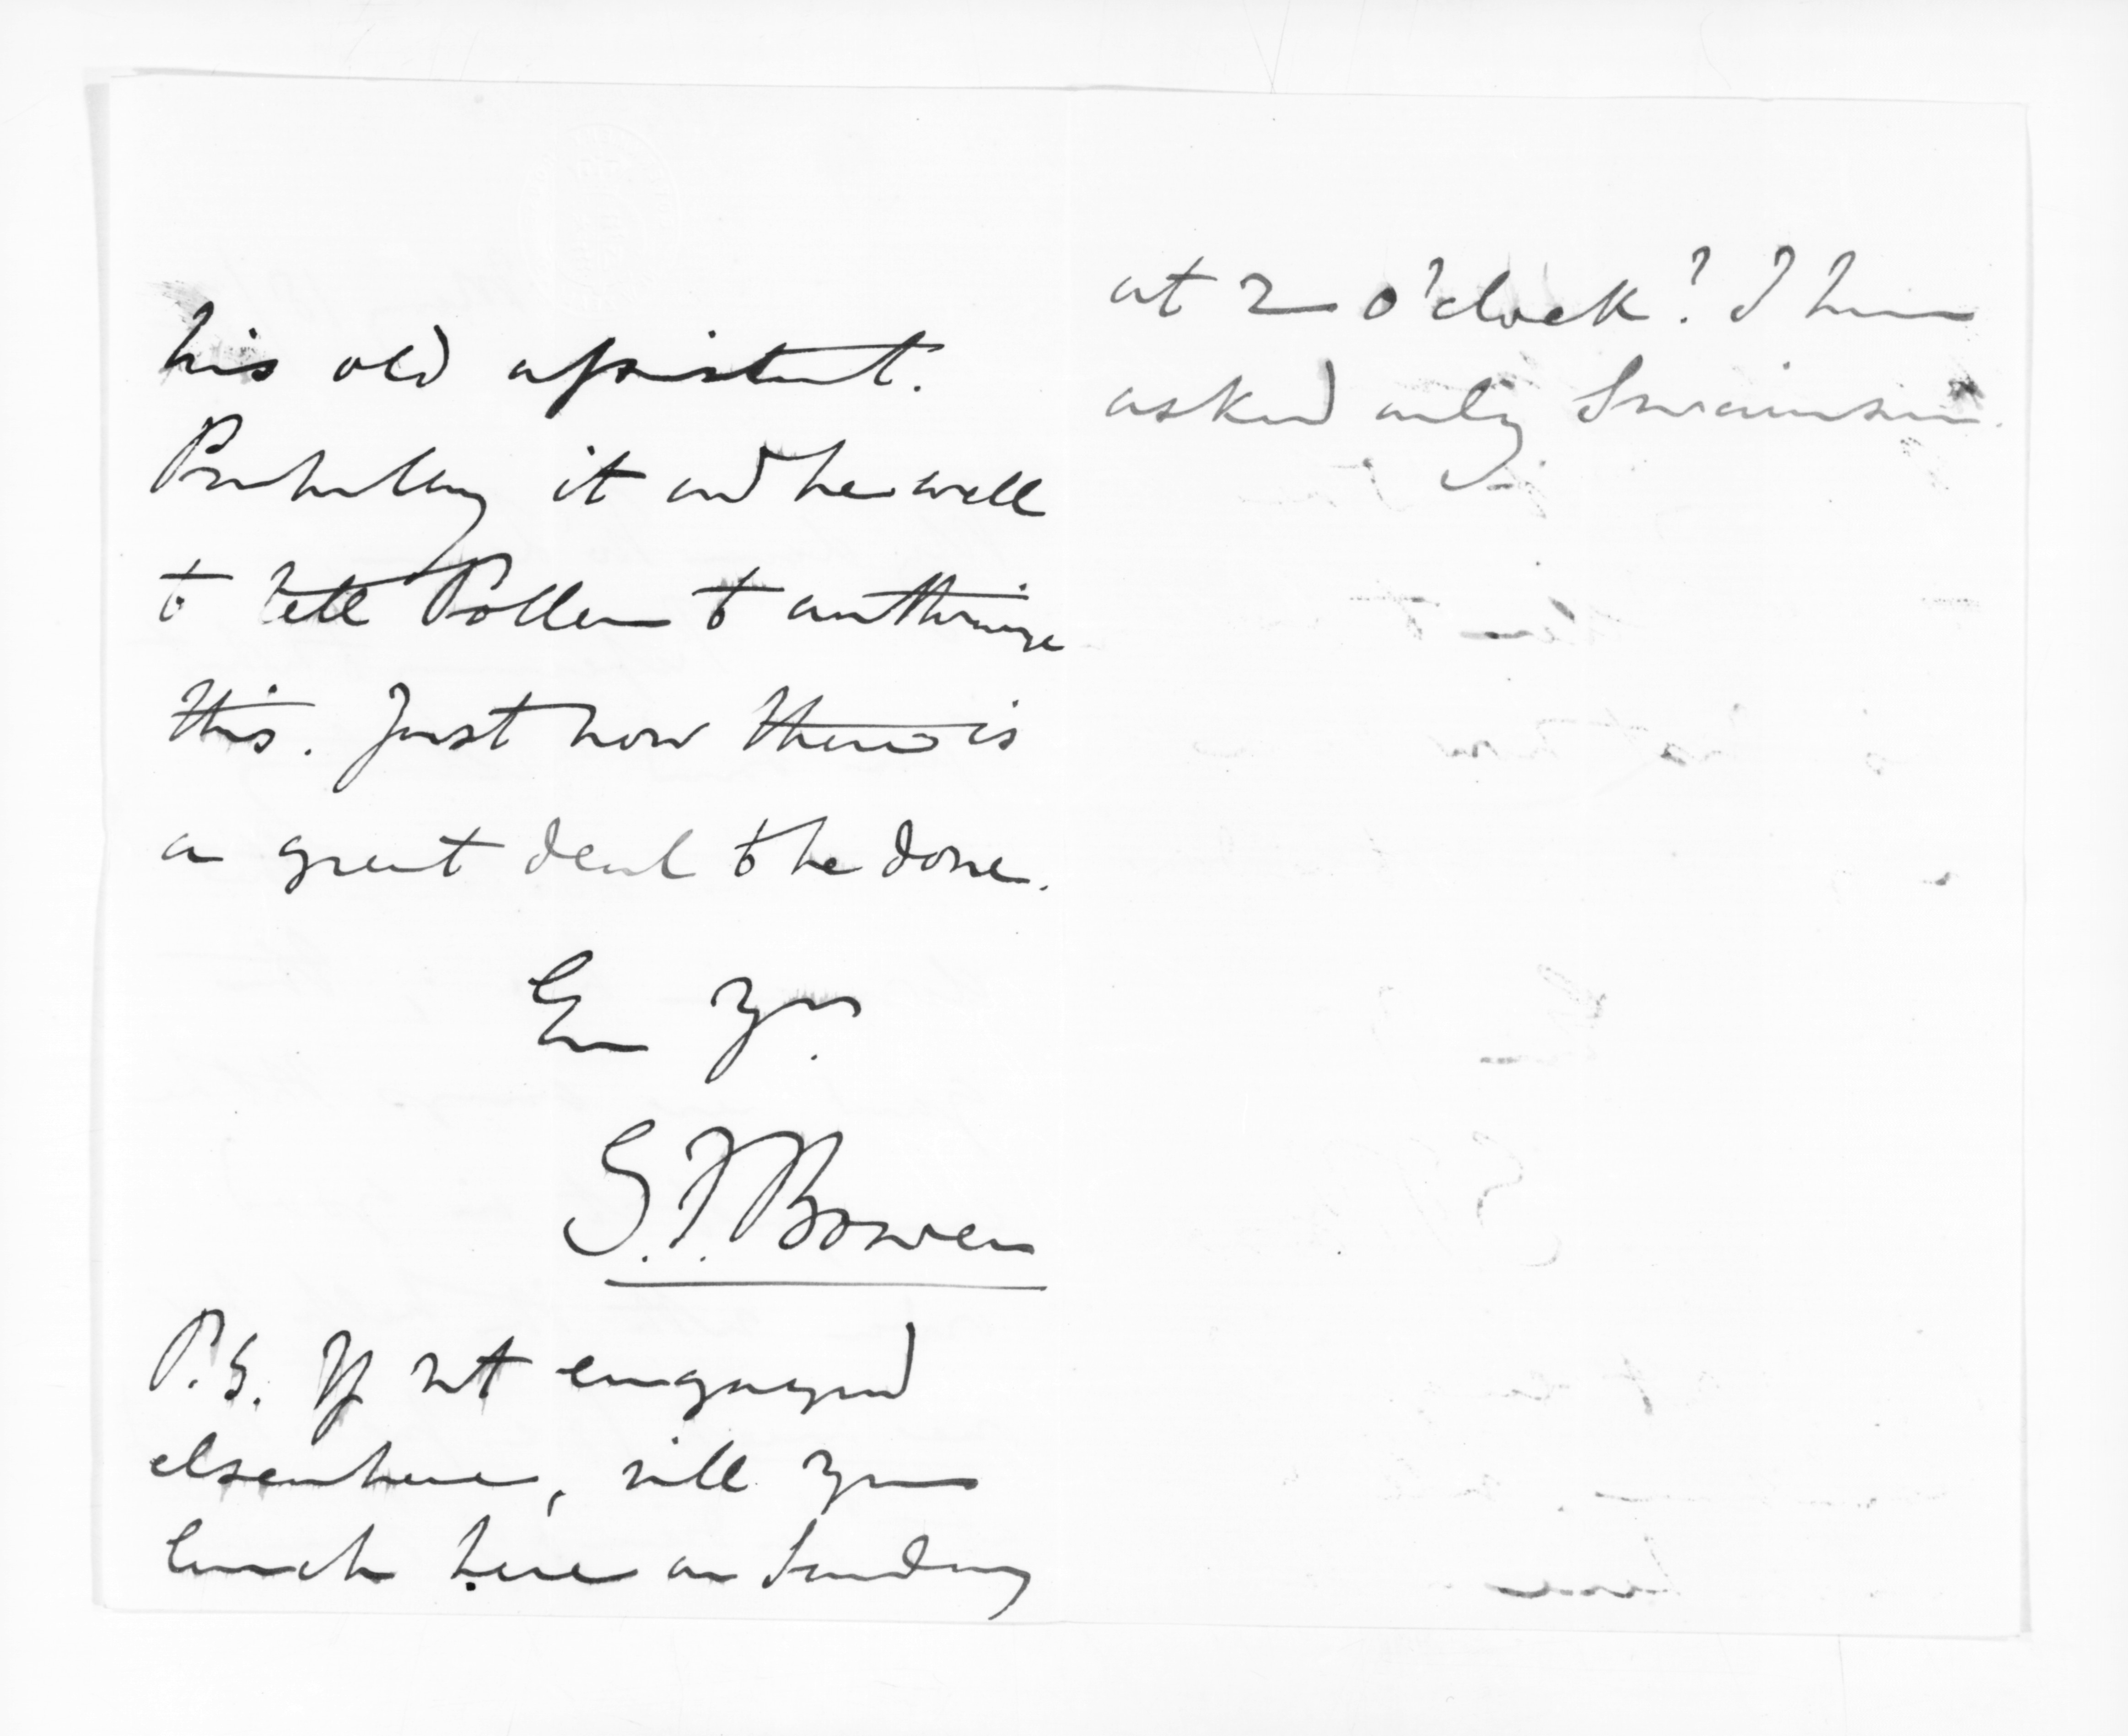 his old assistant.
Probably it wd be well
to tell Pollen to authorize
this. Just now there is
a great deal to be done.
Ever Yrs.
G.F. Bowen
P.S. If not engaged
elsewhere, will you
lunch here on Sunday
at 2 o'clock? I have
asked only Swainson.